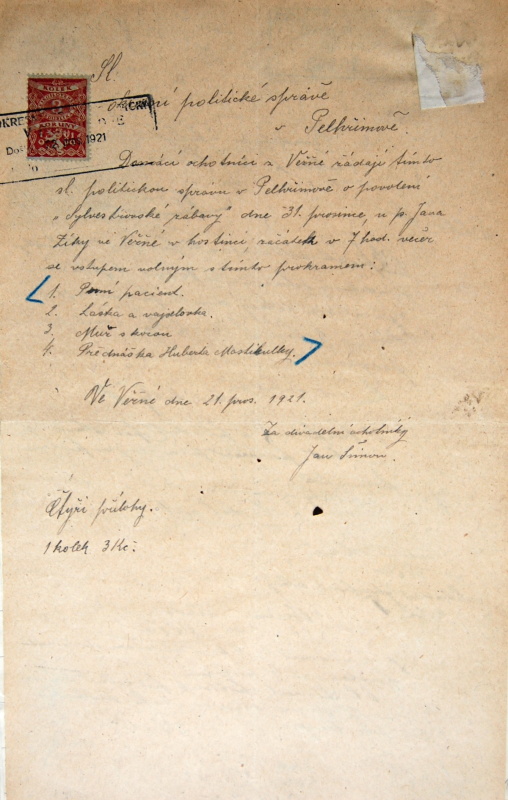 Sl.
okresní politické správě
v Pelhřimově.
Domácí ochotníci z Věžné žádají tímto
sl. politickou správu v Pelhřimově o povolení
"Sylvestrovské zábavy" dne 31. prosince, u p. Jana
Ziky ve Věžné v hostinci začátek v 7 hod. večer
se vstupem volným s tímto prokramem:
1. První pacient.
2. Láska a
3. Muž s
4. Přednáška Huberta Mastikulky.
Ve Věžné dne 21. pros. 1921.
Za divadelní ochotníky
Jan Šimon.
Čtyři přílohy.
1 kolek 3 Kč.
KOLEK
KORUNY
1921